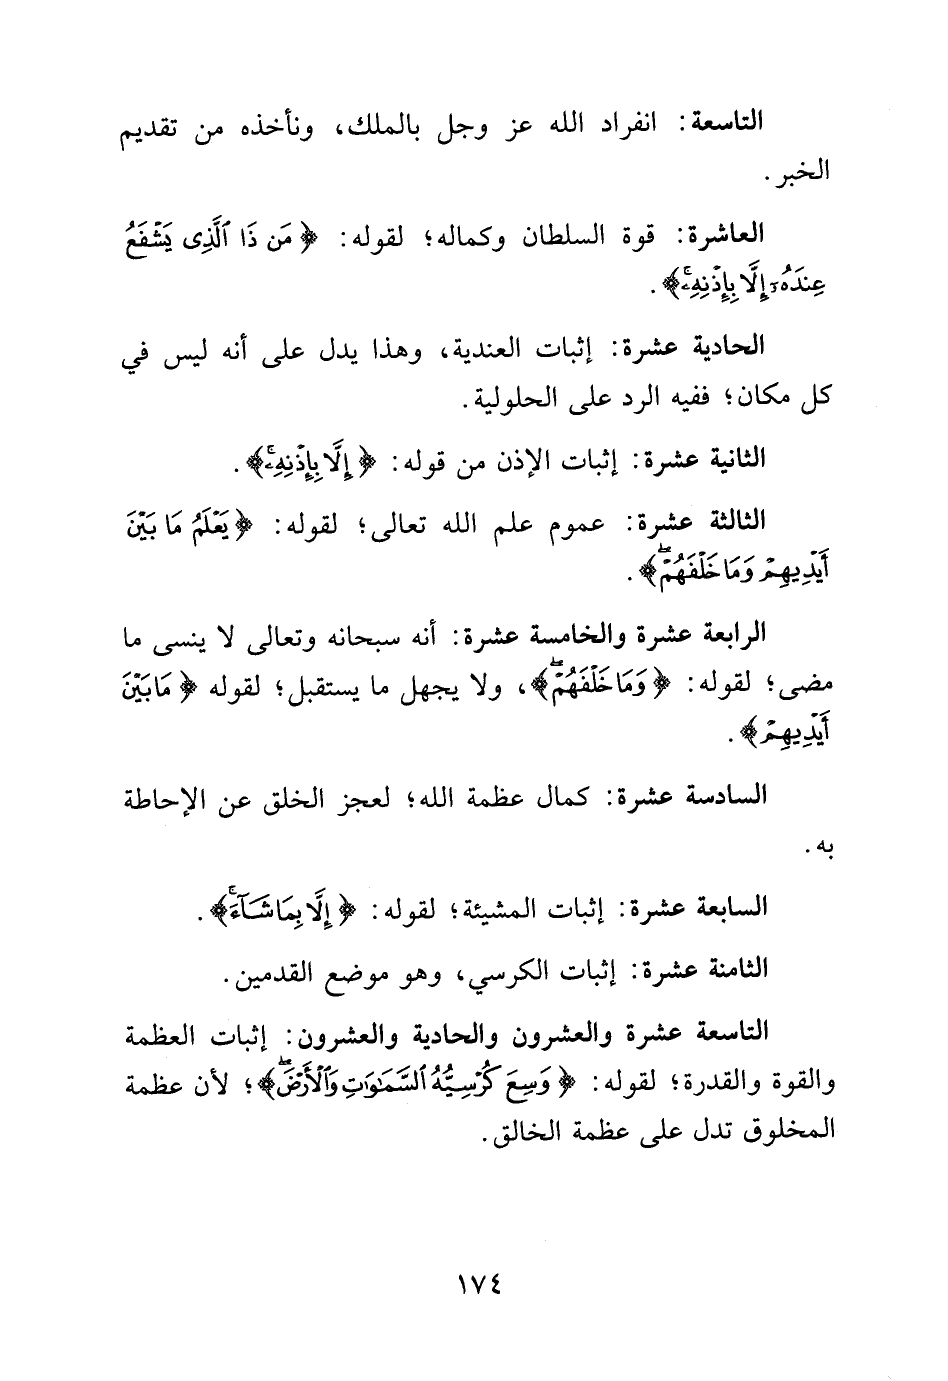 التاسعة: انفراد الله عز وجل بالملك، ونأخذه من تقديم
الخبر.
العاشرة: قوة السلطان وكماله؛ لقوله: ﴿مَن ذَا ٱلَّذِى يَشْفَعُ
عِندَهُۥٓ إِلَّا بِإِذْنِهِۦۚ﴾.
الحادية عشرة: إثبات العندية، وهذا يدل على أنه ليس في
كل مكان؛ ففيه الرد على الحلولية.
الثانية عشرة: إثبات الإذن من قوله: ﴿إِلَّا بِإِذْنِهِۦۚ﴾.
الثالثة عشرة: عموم علم الله تعالى؛ لقوله: ﴿يَعْلَمُ مَا بَيْنَ
أَيْدِيهِمْ وَمَا خَلْفَهُمْۖ﴾.
الرابعة عشرة والخامسة عشرة: أنه سبحانه وتعالى لا ينسى ما
مضى؛ لقوله: ﴿وَمَا خَلْفَهُمْۖ﴾، ولا يجهل ما يستقبل؛ لقوله ﴿مَا بَيْنَ
أَيْدِيهِمْ﴾.
السادسة عشرة: كمال عظمة الله؛ لعجز الخلق عن الإحاطة
به.
السابعة عشرة: إثبات المشيئة؛ لقوله: ﴿إِلَّا بِمَا شَآءَۚ﴾.
الثامنة عشرة: إثبات الكرسي، وهو موضع القدمين.
التاسعة عشرة والعشرون والحادية والعشرون: إثبات العظمة
والقوة والقدرة؛ لقوله: ﴿وَسِعَ كُرْسِيُّهُ ٱلسَّمَٰوَٰتِ وَٱلْأَرْضَۖ﴾؛ لأن عظمة
المخلوق تدل على عظمة الخالق.
١٧٤